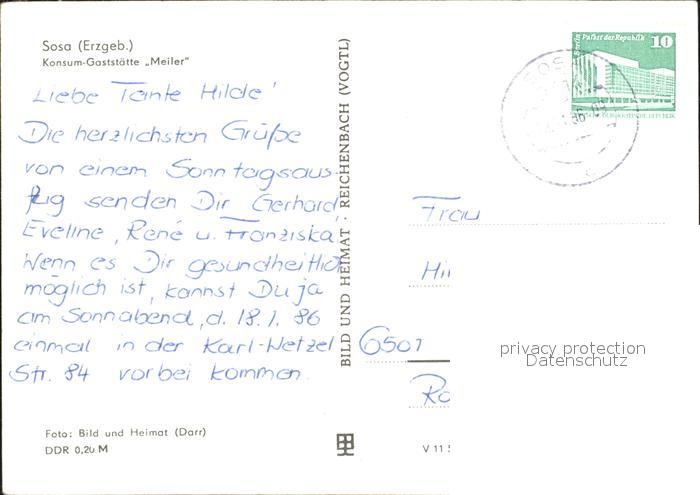 Sosa (Erzgeb.)
Konsum-Gaststätte „Meiler"
Liebe Tante Hilde!
Die herzlichsten Grüße
von einem Sonntagsaus-
flug senden Dir Gerhard,
Eveline, René u. Franziska
Wenn es Dir gesundheitlich
möglich ist, kannst Du ja
am Sonnabend, d. 18.1. 86
einmal in der Karl-Wetzel
Str. 84 vorbei kommen.
Foto: Bild und Heimat (Darr)
DDR 0,20 M
BILD UND HEIMAT · REICHENBACH (VOGTL)
Berlin Palast der Republik
10
DEUTSCHE DEMOKRATISCHE REPUBLIK
SOSA
Frau
6501
V 11
privacy protection
Datenschutz